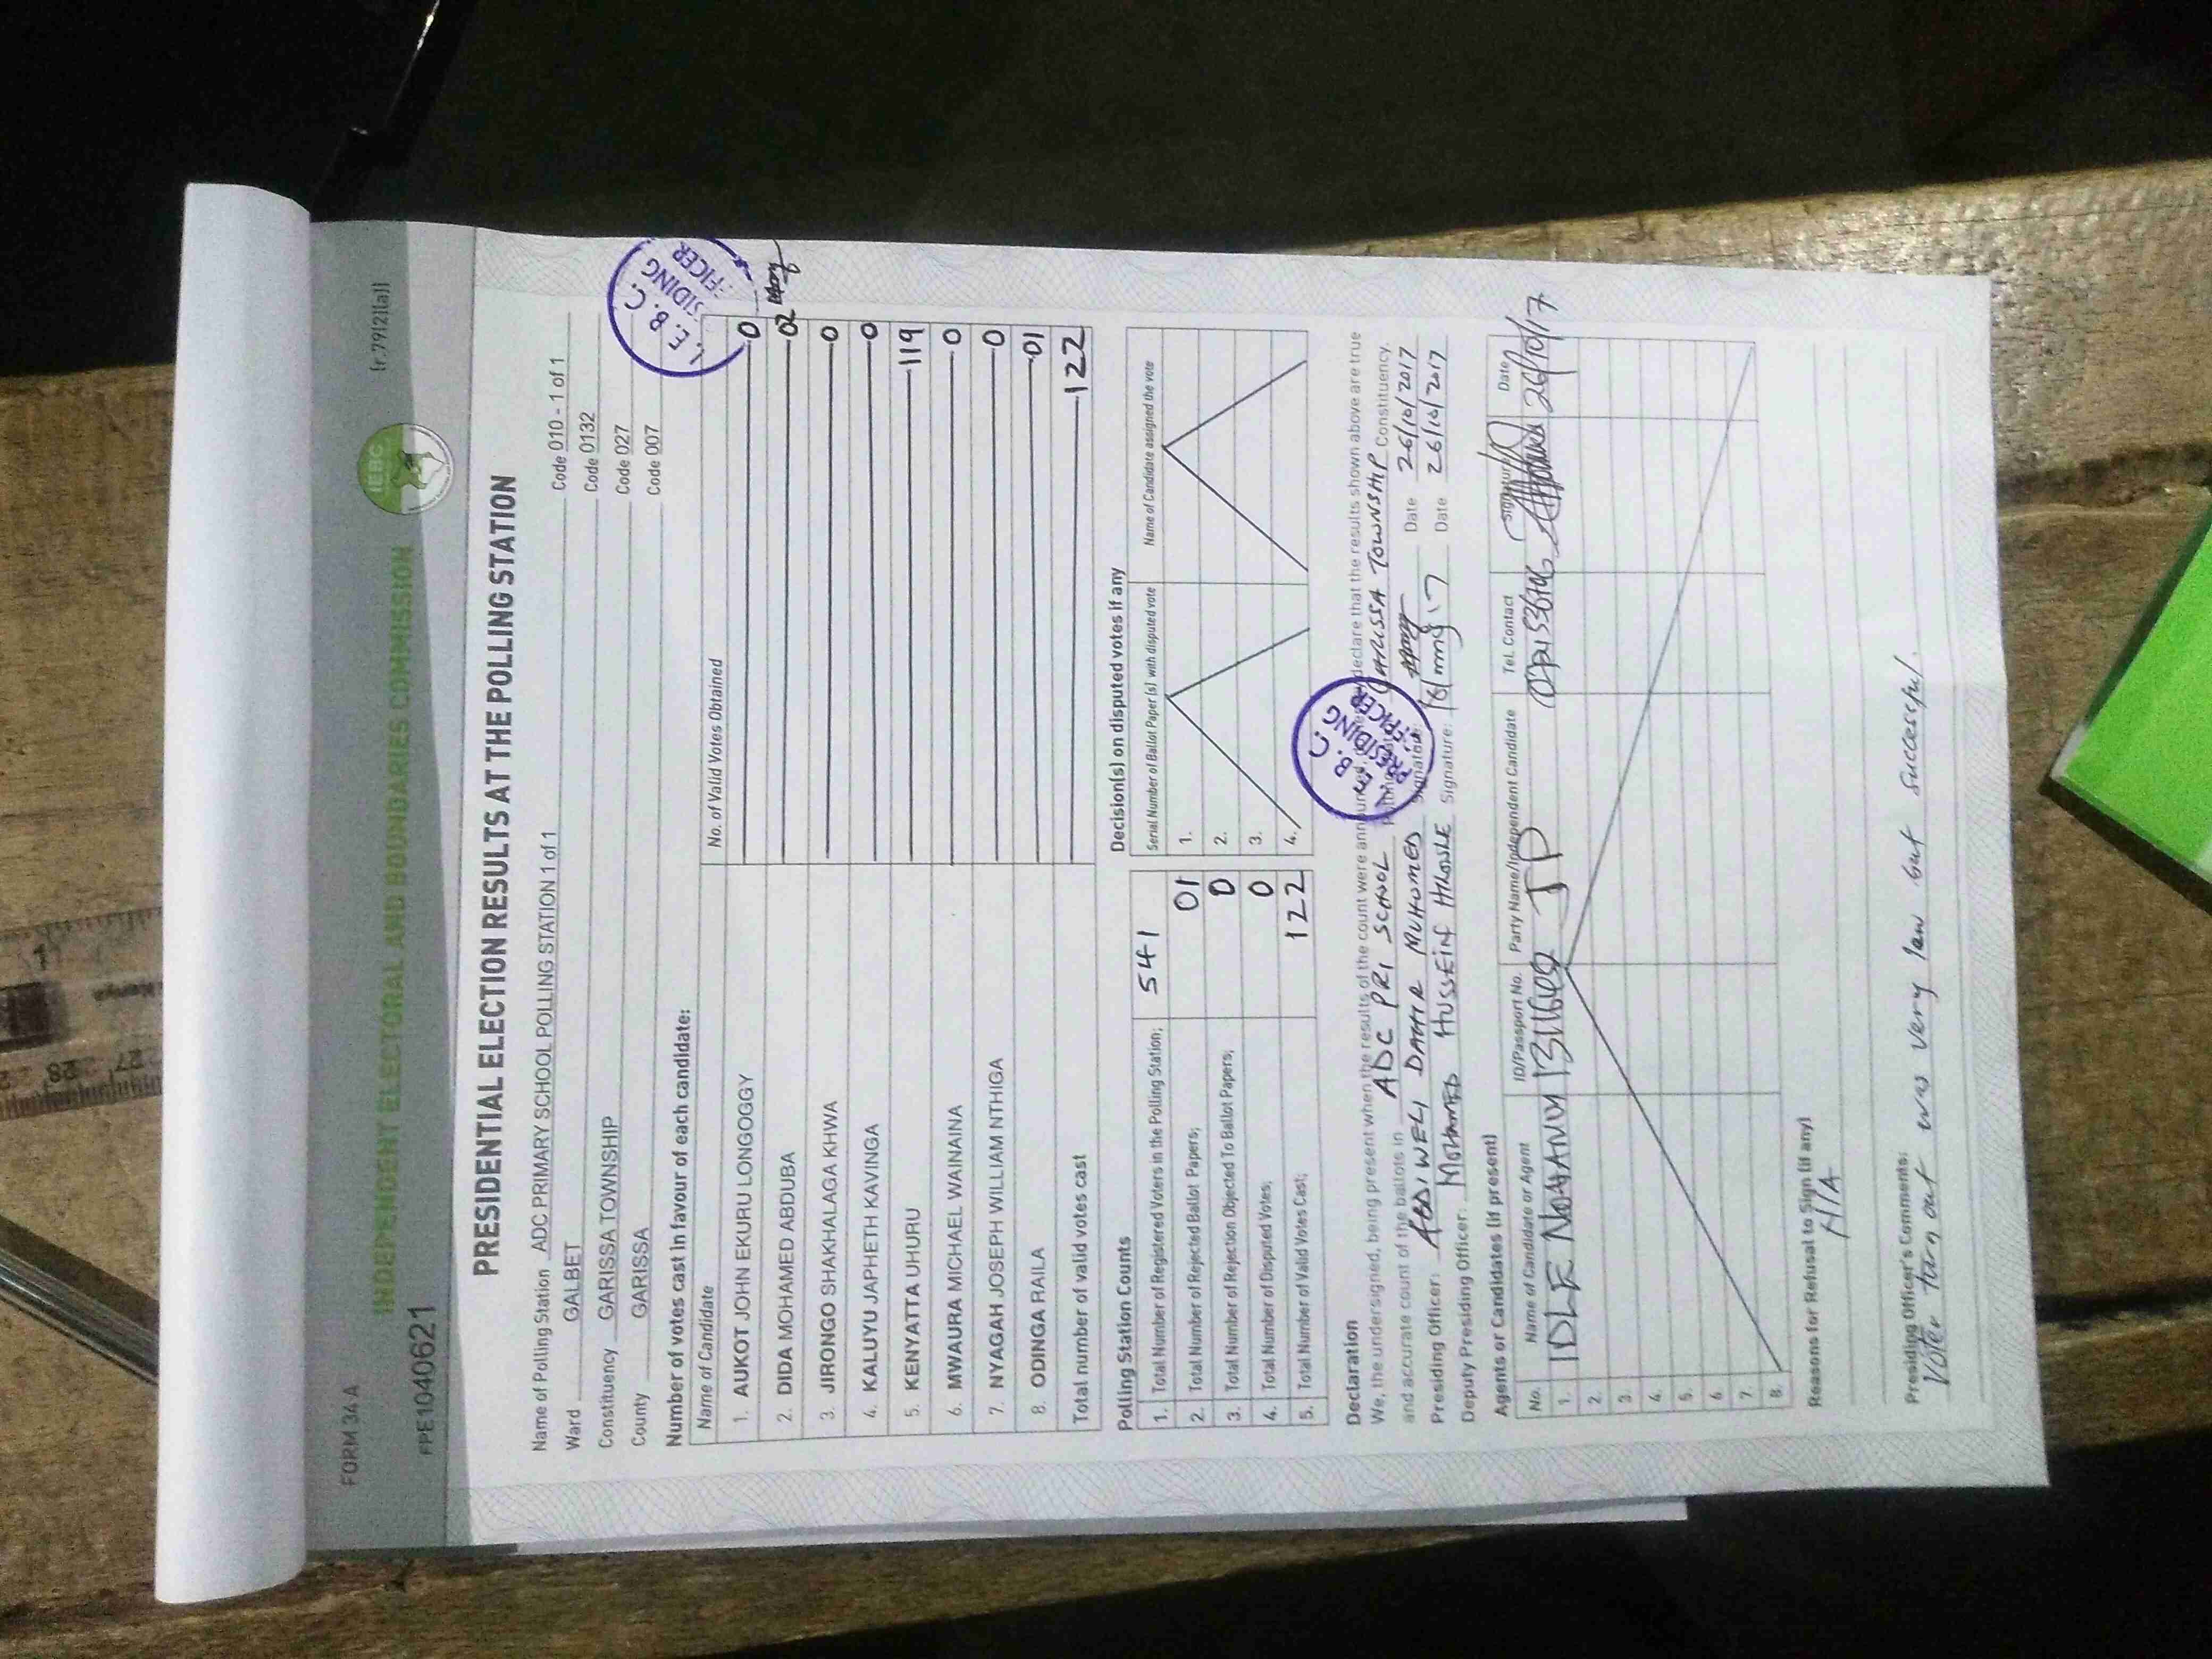 FORM 34 A
[r.79(2)(a)]
INDEPENDENT ELECTORAL AND BOUNDARIES COMMISSION
IEBC
FPE1040621
PRESIDENTIAL ELECTION RESULTS AT THE POLLING STATION
Name of Polling Station ADC PRIMARY SCHOOL POLLING STATION 1 of 1 Code 010 - 1 of 1
Ward GALBET Code 0132
Constituency GARISSA TOWNSHIP Code 027
County GARISSA Code 007
I. E. B. C. SIDING FICER
Number of votes cast in favour of each candidate:
Name of Candidate No. of Valid Votes Obtained
1. AUKOT JOHN EKURU LONGOGGY 0
2. DIDA MOHAMED ABDUBA 02
3. JIRONGO SHAKHALAGA KHWA 0
4. KALUYU JAPHETH KAVINGA 0
5. KENYATTA UHURU 119
6. MWAURA MICHAEL WAINAINA 0
7. NYAGAH JOSEPH WILLIAM NTHIGA 0
8. ODINGA RAILA 01
Total number of valid votes cast 122
Polling Station Counts
1. Total Number of Registered Voters in the Polling Station; 541
2. Total Number of Rejected Ballot Papers; 01
3. Total Number of Rejection Objected To Ballot Papers; 0
4. Total Number of Disputed Votes; 0
5. Total Number of Valid Votes Cast; 122
Decision(s) on disputed votes if any
Serial Number of Ballot Paper(s) with disputed vote Name of Candidate assigned the vote
1.
2.
3.
4.
Declaration
We, the undersigned, being present when the results of the count were declare that the results shown above are true
and accurate count of the ballots in ADC PRI SCHOOL GARISSA TOWNSHIP Constituency.
Presiding Officer: ABDIWELI DAHIR MUHUMED Signature: Date 26/10/2017
Deputy Presiding Officer: MOHAMED HUSSEIN Signature: Date 26/10/2017
I. E. B. C. PRESIDING OFFICER
Agents or Candidates (if present)
No. Name of Candidate or Agent ID/Passport No. Party Name/Independent Candidate Tel. Contact Signature Date
1. IDLE JP 26/10/17
2.
3.
4.
5.
6.
7.
8.
Reasons for Refusal to Sign (if any)
N/A
Presiding Officer's Comments:
Voter turn out was very low but successful.